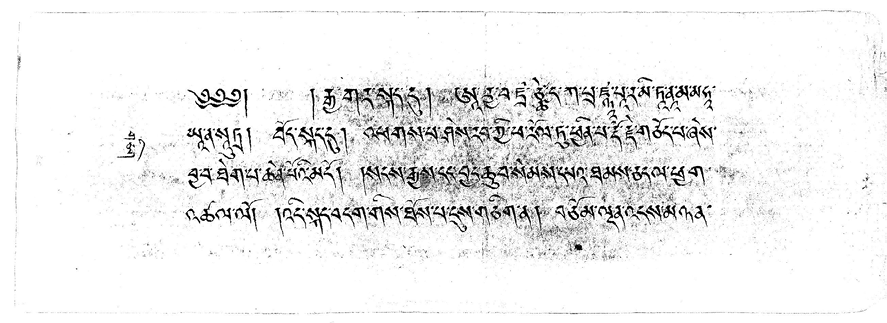 ༄༅༅། །རྒྱ་གར་སྐད་དུ། ཨཱརྱ་བ་ཛྲ་ཙྪེ་ད་ཀ་པྲ་ཛྙཱ་པཱ་ར་མི་ཏཱ་ནཱ་མ་མ་ཧཱ་
ཡཱ་ན་སཱུ་ཏྲ། བོད་སྐད་དུ། འཕགས་པ་ཤེས་རབ་ཀྱི་ཕ་རོལ་ཏུ་ཕྱིན་པ་རྡོ་རྗེ་གཅོད་པ་ཞེས་
བྱ་བ་ཐེག་པ་ཆེན་པོའི་མདོ། །སངས་རྒྱས་དང་བྱང་ཆུབ་སེམས་དཔའ་ཐམས་ཅད་ལ་ཕྱག་
འཚལ་ལོ། །འདི་སྐད་བདག་གིས་ཐོས་པ་དུས་གཅིག་ན། བཅོམ་ལྡན་འདས་མཉན་